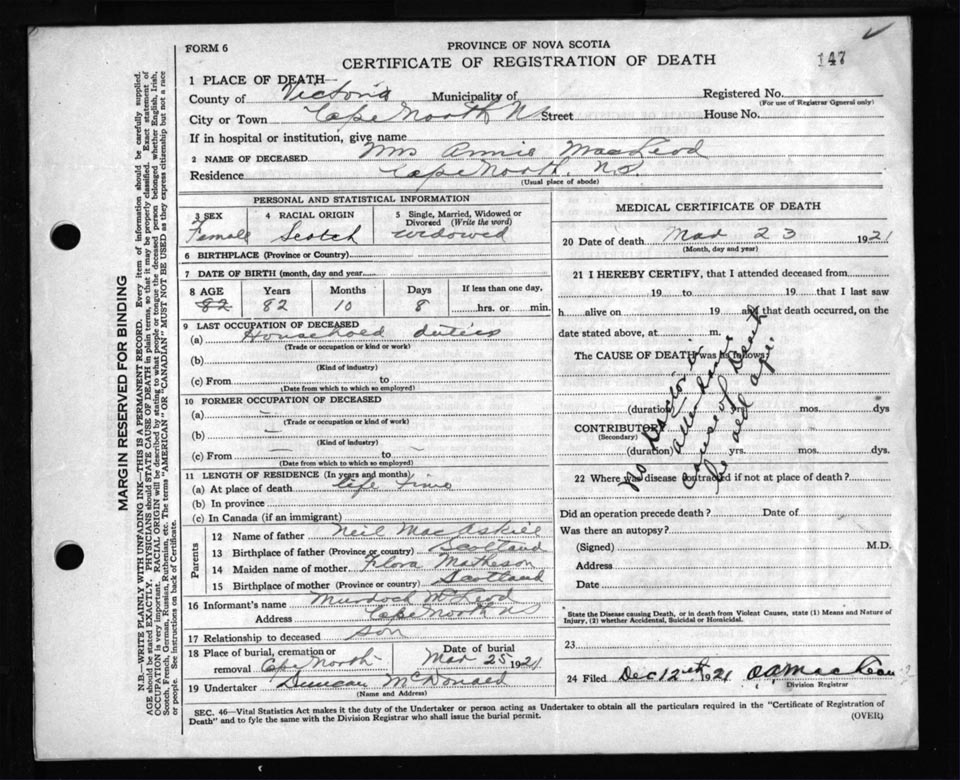 FORM 6
PROVINCE OF NOVA SCOTIA
CERTIFICATE OF REGISTRATION OF DEATH
147
1 PLACE OF DEATH—
County of Victoria Municipality of Registered No.
(For use of Registrar General only)
City or Town Cape North NS Street House No.
If in hospital or institution, give name
2 NAME OF DECEASED Mrs Annie MacLeod
Residence Cape North. N.S.
(Usual place of abode)
PERSONAL AND STATISTICAL INFORMATION
3 SEX
Female
4 RACIAL ORIGIN
Scotch
5 Single, Married, Widowed or
Divorced (Write the word)
widowed
6 BIRTHPLACE (Province or Country)
7 DATE OF BIRTH (month, day and year
8 AGE Years Months Days If less than one day,
82 82 10 8 hrs. or min.
9 LAST OCCUPATION OF DECEASED
(a) Household duties
(Trade or occupation or kind or work)
(b)
(Kind of industry)
(c) From to
(Date from which to which so employed)
10 FORMER OCCUPATION OF DECEASED
(a) —
(Trade or occupation or kind of work)
(b) —
(Kind of industry)
(c) From — to —
(Date from which to which so employed)
11 LENGTH OF RESIDENCE (In years and months)
(a) At place of death Life Time
(b) In province
(c) In Canada (if an immigrant)
Parents
12 Name of father Neil MacAskill
13 Birthplace of father (Province or country) Scotland
14 Maiden name of mother Flora Matheson
15 Birthplace of mother (Province or country) Scotland
16 Informant's name Murdoch McLeod
Address Cape North NS
17 Relationship to deceased Son
18 Place of burial, cremation or
removal Cape North
Date of burial
Mar 25 1921
19 Undertaker Duncan McDonald
(Name and Address)
MEDICAL CERTIFICATE OF DEATH
20 Date of death Mar 23 1921
(Month, day and year)
21 I HEREBY CERTIFY, that I attended deceased from
19 to 19 that I last saw
h alive on 19 and that death occurred, on the
date stated above, at m.
The CAUSE OF DEATH was as follows:
(duration) yrs. mos. dys
CONTRIBUTORY
(Secondary)
(duration) yrs. mos. dys.
No Doctor in
attendance
Cause of Death
old age.
22 Where was disease contracted if not at place of death?
Did an operation precede death? Date of
Was there an autopsy?
(Signed) M.D.
Address
Date
*State the Disease causing Death, or in death from Violent Causes, state (1) Means and Nature of
Injury, (2) whether Accidental, Suicidal or Homicidal.
23
24 Filed Dec 12th 1921
Division Registrar
SEC. 46—Vital Statistics Act makes it the duty of the Undertaker or person acting as Undertaker to obtain all the particulars required in the "Certificate of Registration of
Death" and to fyle the same with the Division Registrar who shall issue the burial permit.
(OVER)
MARGIN RESERVED FOR BINDING
N.B.—WRITE PLAINLY WITH UNFADING INK—THIS IS A PERMANENT RECORD. Every item of information should be carefully supplied.
AGE should be stated EXACTLY. PHYSICIANS should STATE CAUSE OF DEATH in plain terms, so that it may be properly classified. Exact statement of
OCCUPATION is very important. RACIAL ORIGIN will be described by stating to what people or tongue the deceased person belonged whether English, Irish,
Scotch, French, German, Russian, Ruthenian, etc. The terms "AMERICAN" OR "CANADIAN" MUST NOT BE USED as they express citizenship but not a race
or people. See instructions on back of Certificate.